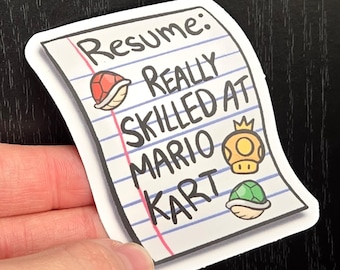 Resume:
REALLY
SKILLED AT
MARIO
KART